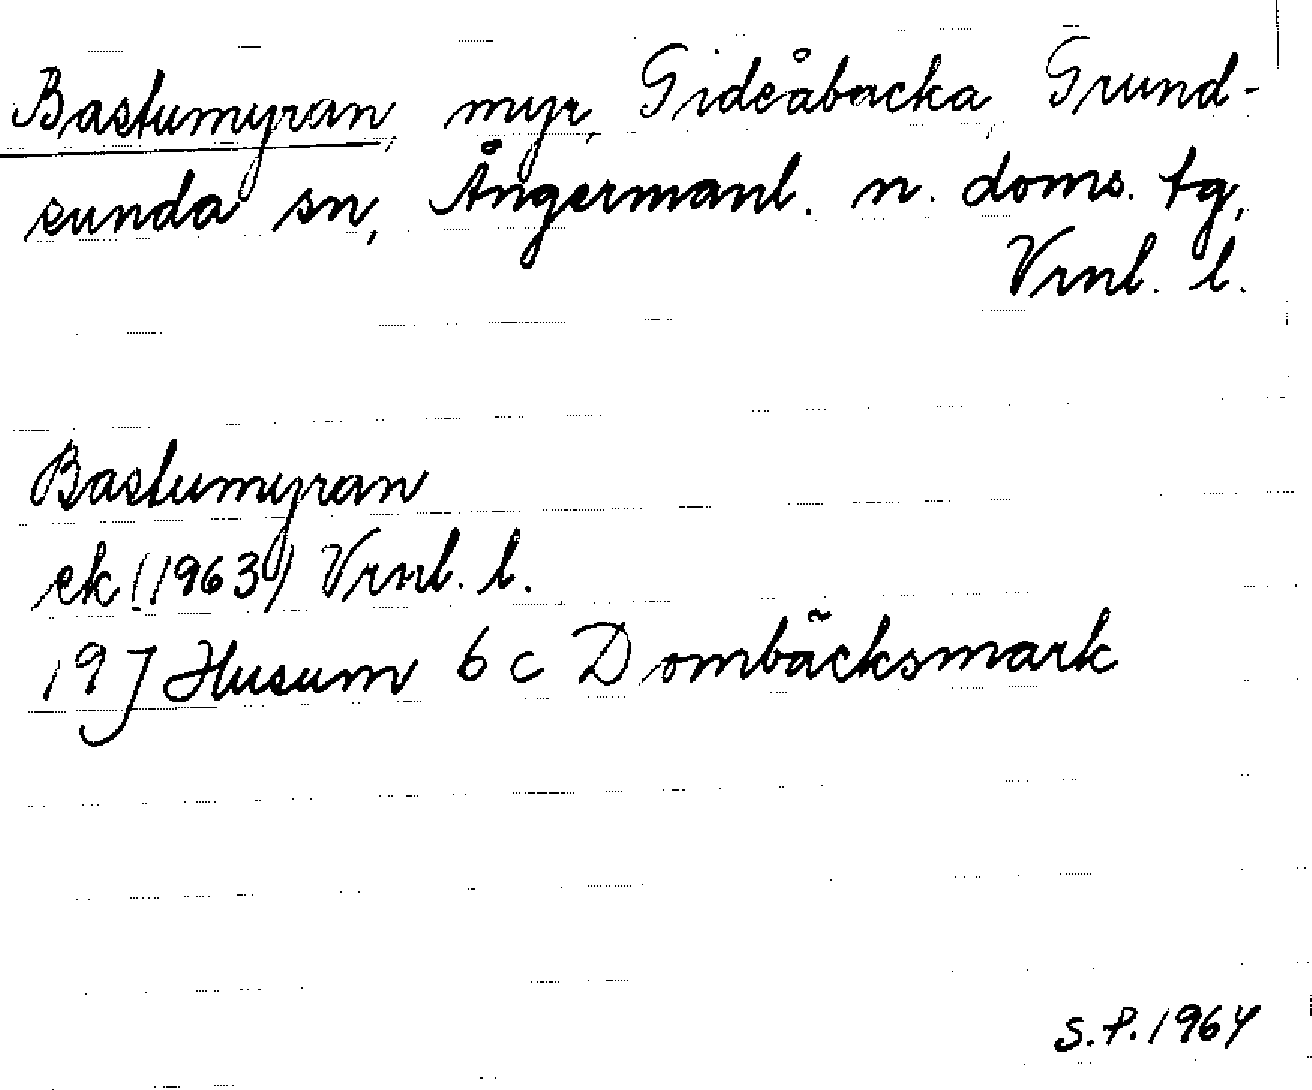 Bastumyran, myr, Gideåbacka, Grund-
sunda sn, Ångermanl. n. doms. tg,
Vrnl. l.
Bastumyran
ek (1963) Vrnl. l.
19J Husum 6c Dombäcksmark
S.P. 1964